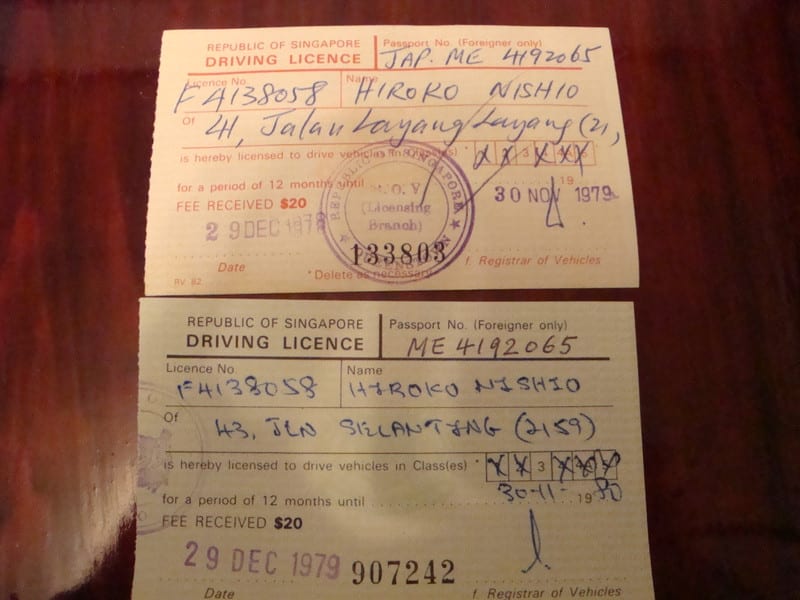 REPUBLIC OF SINGAPORE
DRIVING LICENCE
Passport No. (Foreigner only)
JAP. ME 4192065
Licence No.
Name
F4138058 HIROKO NISHIO
Of
41, Jalan Layang Layang (21,
is hereby licensed to drive vehicles in Class(es) * 3
for a period of 12 months until 19
30 NOV 1979
FEE RECEIVED $20
29 DEC 1978
REPUBLIC OF SINGAPORE
R.O.V.
(Licensing
Branch)
133803
Date
* Delete as necessary
f. Registrar of Vehicles
RV 82
REPUBLIC OF SINGAPORE
DRIVING LICENCE
Passport No. (Foreigner only)
ME 4192065
Licence No.
Name
F4138058 HIROKO NISHIO
Of
43, JLN SELANTING (2159)
is hereby licensed to drive vehicles in Class(es) * 3
for a period of 12 months until 30-11- 1980
FEE RECEIVED $20
29 DEC 1979 907242
Date
f. Registrar of Vehicles